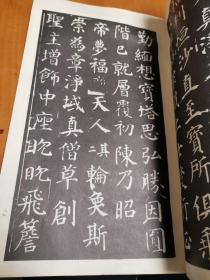 沙直至寶所俱
勤緬想寶塔思弘勝因圓
階已就層覆初陳乃昭
帝夢福應天人其三輪奐斯
崇為章淨域真僧草創
聖主增飾中座眈眈飛簷